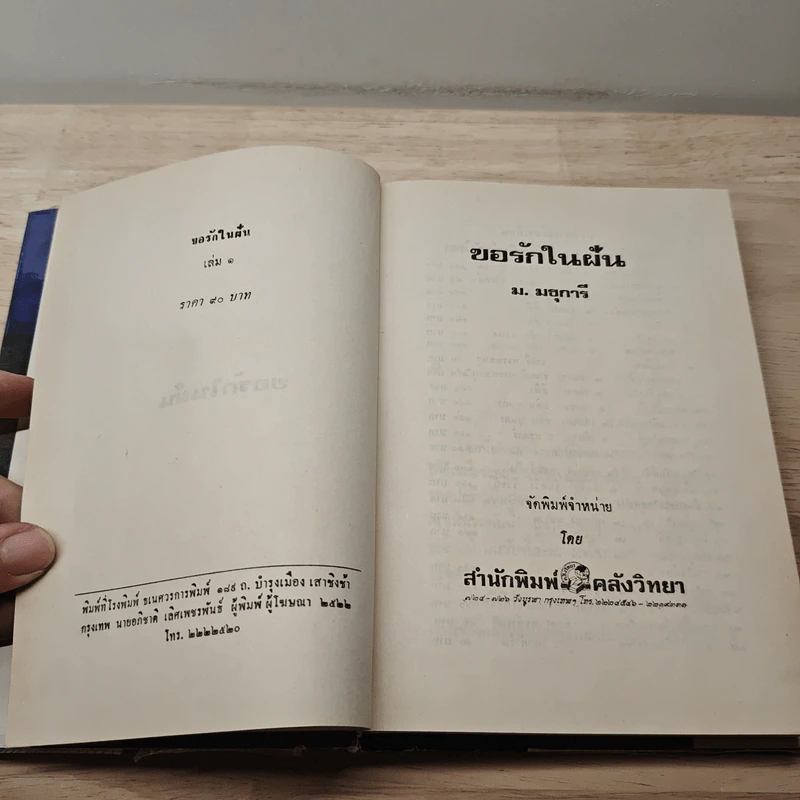 ขอรักในฝัน
เล่ม ๑
ราคา ๙๐ บาท
พิมพ์ที่โรงพิมพ์ ธเนศวรการพิมพ์ ๑๘๙ ถ. บำรุงเมือง เสาชิงช้า
กรุงเทพ นายอภิชาติ เลิศเพชรพันธ์ ผู้พิมพ์ ผู้โฆษณา ๒๕๒๒
โทร. ๒๒๒๒๕๒๐
ขอรักในฝัน
ม. มธุการี
จัดพิมพ์จำหน่าย
โดย
สำนักพิมพ์ คลังวิทยา
๗๒๔ - ๗๒๖ วังบูรพา กรุงเทพฯ โทร. ๒๒๒๔๕๔๖ -